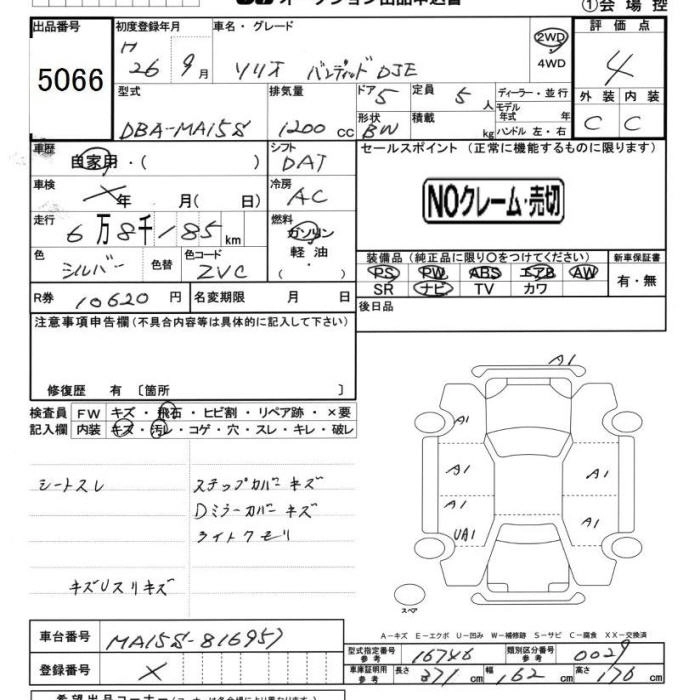 ①会場控
出品番号 初度登録年月 車名・グレード 評価点
5066 H 26 9月 ソリオ バンディット DJE 2WD 4WD 4
型式 排気量 ドア 5 定員 5人 ディーラー・並行 外装 内装
DBA-MA15S 1200cc 形状 BW 積載 kg モデル年式 年 ハンドル 左・右 C C
車歴 自家用・( ) シフト DAT セールスポイント (正常に機能するものに限ります)
車検 年 月( 日) 冷房 AC
NOクレーム・売切
走行 6万8千185km 燃料 ガソリン 軽油 ・
色 シルバー 色替 色コード ZVC 装備品 (純正品に限り○をつけてください) 新車保証書
PS PW ABS エアB AW 有・無
R券 10620円 名変期限 月 日 SR ナビ TV カワ
注意事項申告欄(不具合内容等は具体的に記入して下さい) 後日品
修復歴 有 〔箇所 〕
検査員 FW キズ・飛石・ヒビ割・リペア跡・×要
記入欄 内装 キズ・汚レ・コゲ・穴・スレ・キレ・破レ
A1
A1
A1 A1
A1 A1
UA1
シートスレ ステップカバーキズ
Dミラーカバーキズ
ライトクモリ
キズUスリキズ
スペア
A-キズ E-エクボ U-凹み W-補修跡 S-サビ C-腐食 XX-交換済
車台番号 MA15S-816957
登録番号 ×
型式指定番号 参考 16746 類別区分番号 参考 0029
車庫証明用 参考 長さ 371cm 幅 162cm 高さ 176cm